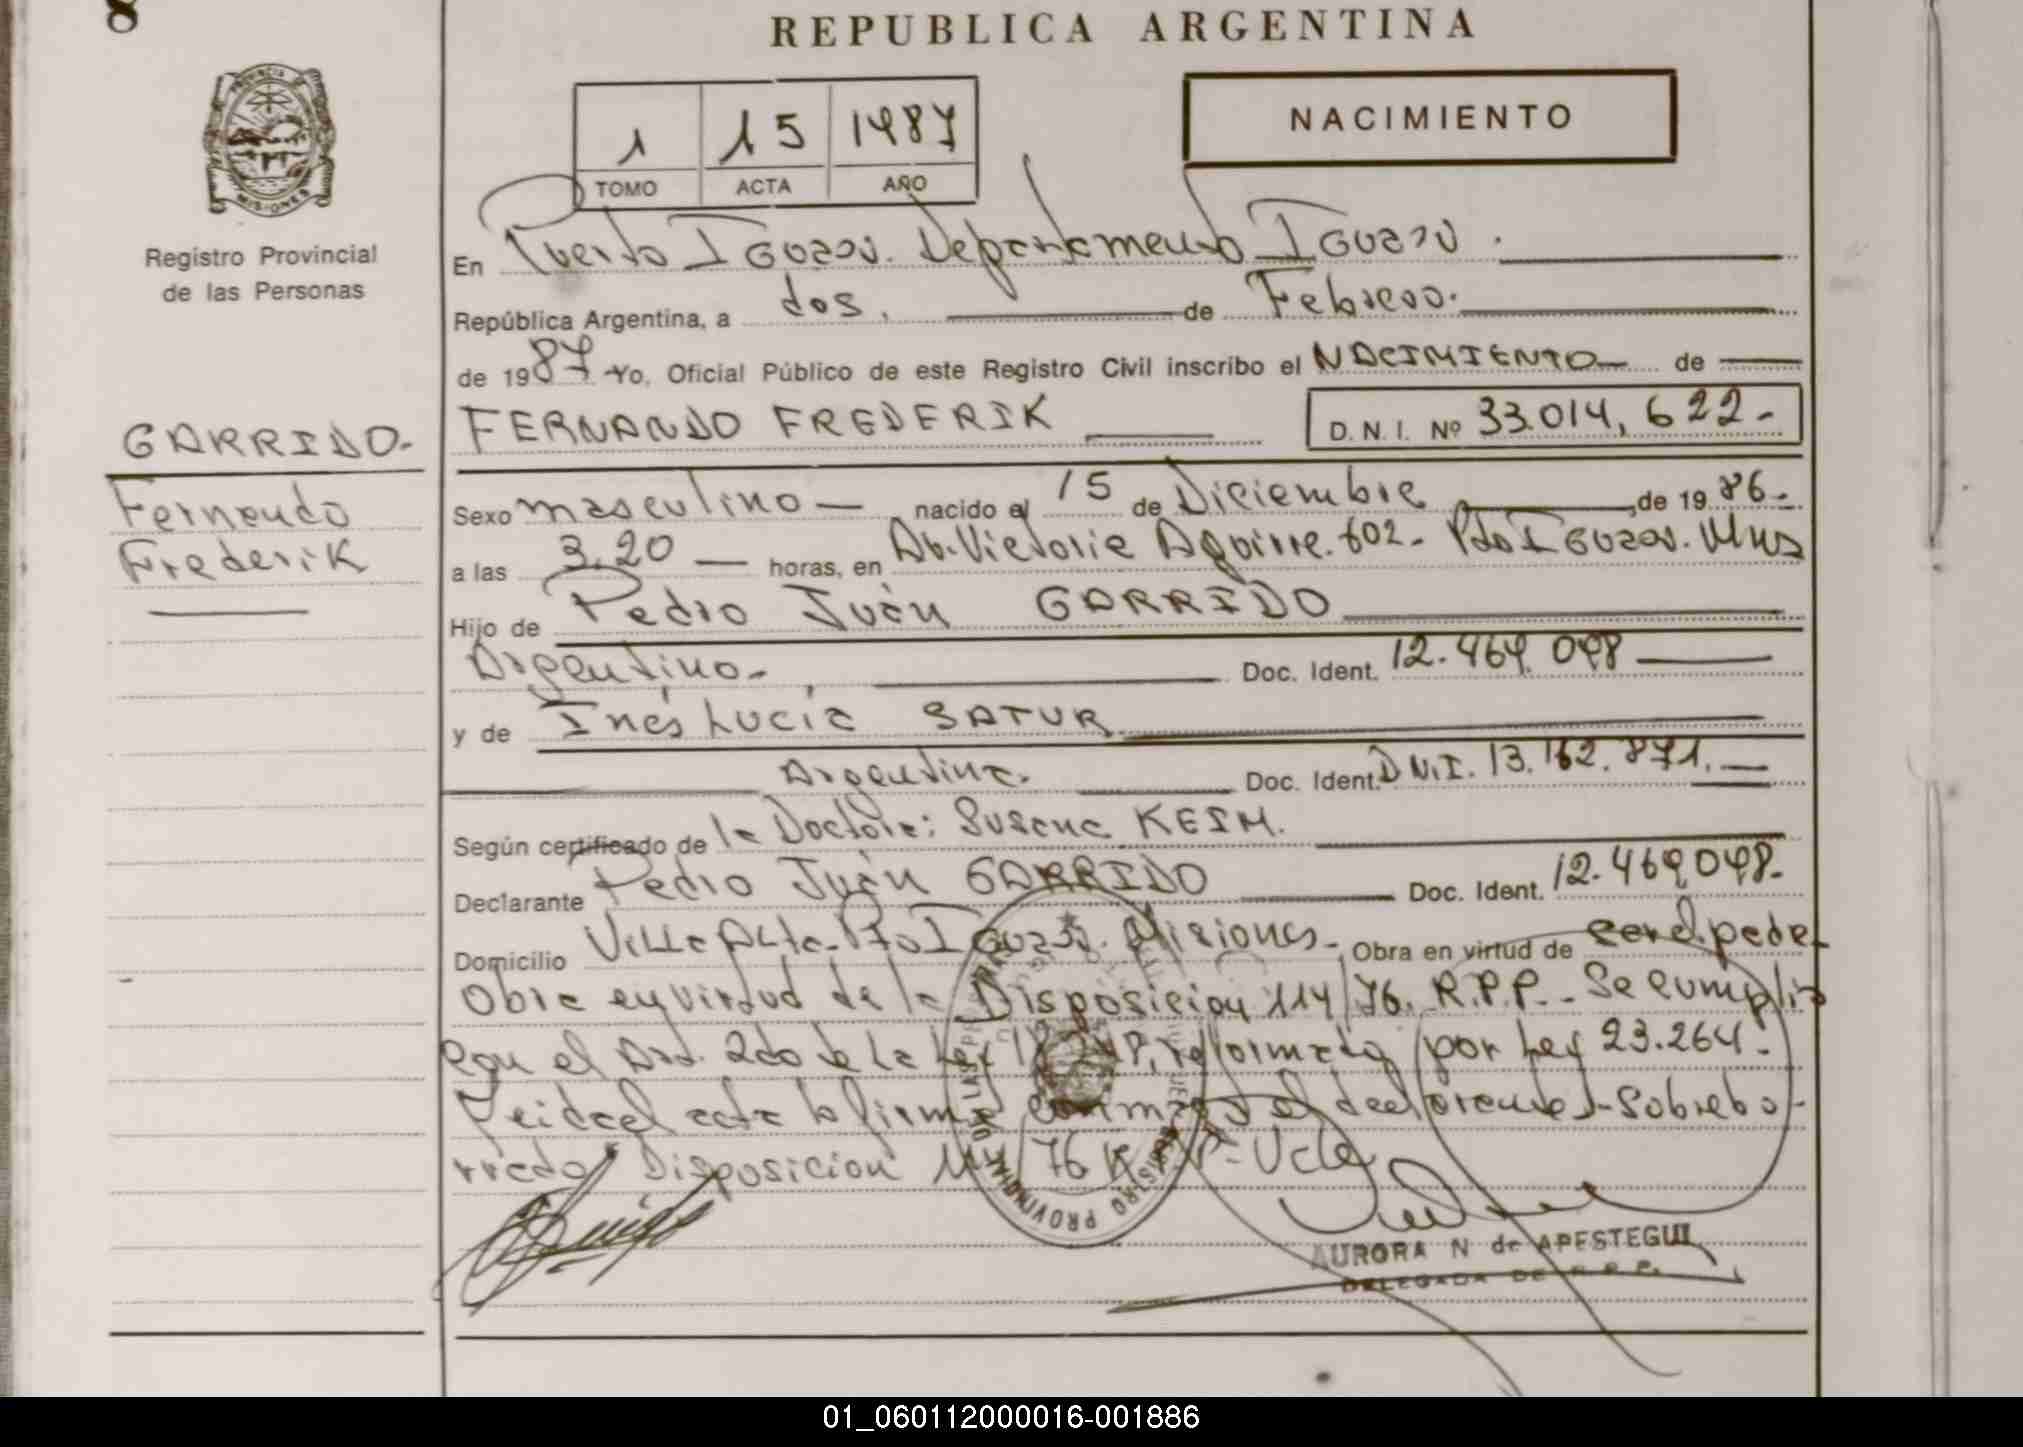 8
REPUBLICA ARGENTINA
PROVINCIA DE
MISIONES
Registro Provincial
de las Personas
1 15 1987
TOMO ACTA AÑO
NACIMIENTO
En Puerto Iguazú. Departamento Iguazú.
República Argentina, a dos, de Febrero.
de 1987 Yo, Oficial Público de este Registro Civil inscribo el NACIMIENTO de
GARRIDO.
Fernando
Frederik
FERNANDO FREDERIK
D. N. I. Nº 33.014,622-
Sexo masculino nacido el 15 de Diciembre, de 1986.
a las 3.20 horas, en Av. Victoria Aguirre. 602- Pto Iguazú. Mnes
Hijo de Pedro Juán GARRIDO
Argentino. Doc. Ident. 12.469.098
y de Inés Lucía SATUR
Argentina. Doc. Ident. D.N.I. 13.162.871.
Según certificado de la Doctora: Susana KEIM.
Declarante Pedro Juán GARRIDO Doc. Ident. 12.469,098.
Domicilio Villa Alta. Pto Iguazú. Misiones. Obra en virtud de
Obra en virtud de la Disposicion 114/76. R.P.P. Se cumplio
con el Art. 2do de la Ley reformada por Ley 23.264.
Leida el acta la firma conmigo el declarante. Sobrebo-
rrado Disposicion Vale
REGISTRO PROVINCIAL DE LAS
AURORA N de APESTEGUI
DELEGADA DE R.P.P.
01_060112000016-001886